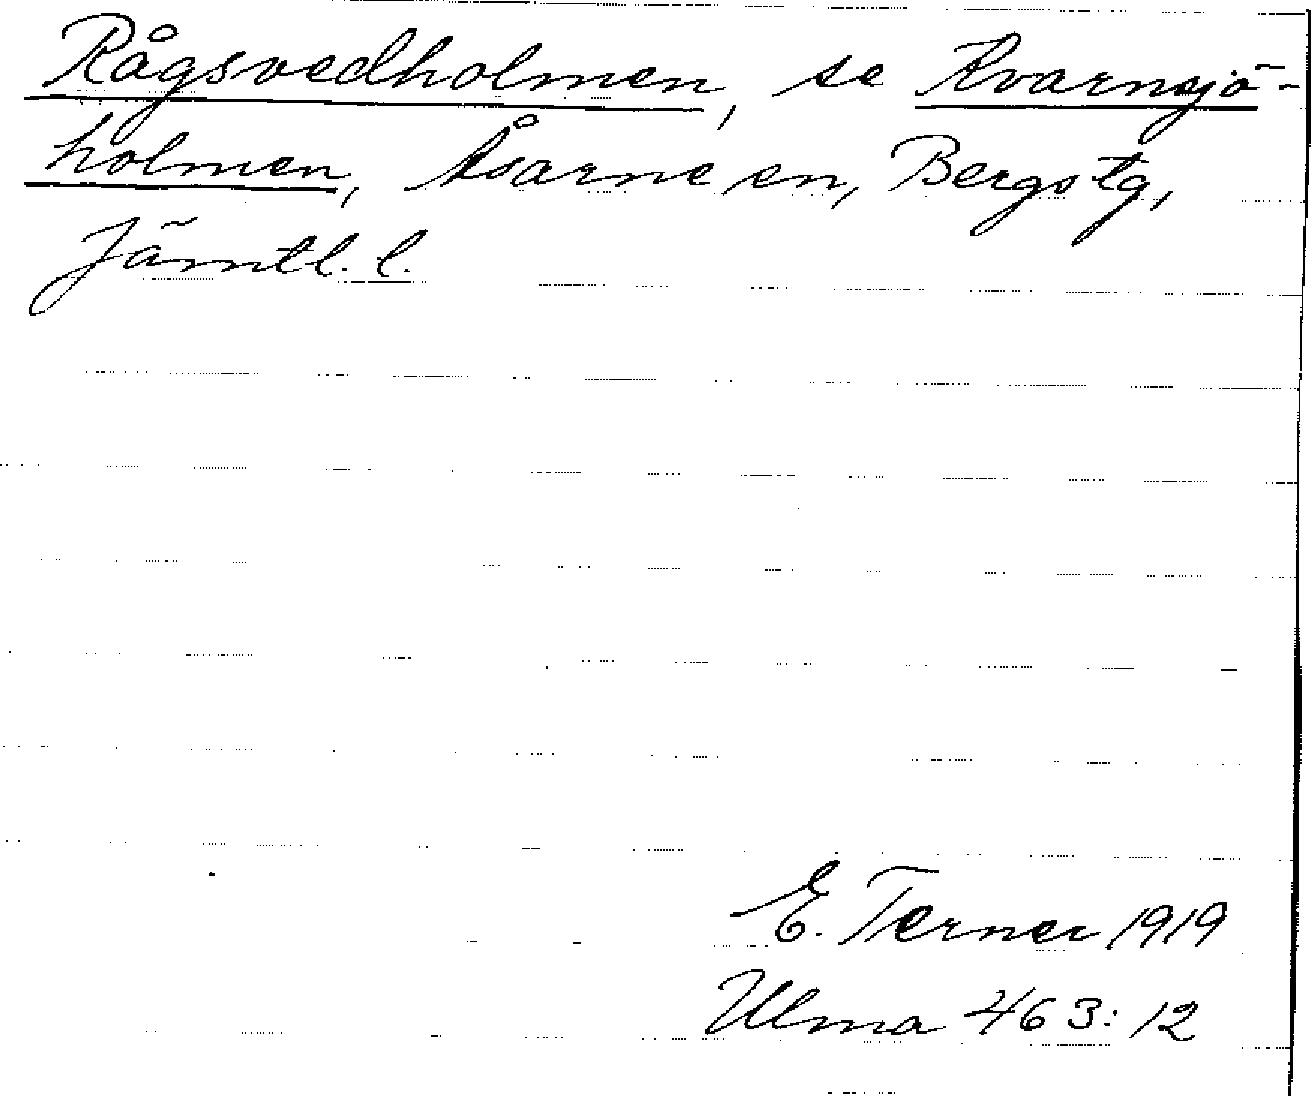 Rågsvedholmen, se Kvarnsjö-
holmen, Åsarne sn, Bergs tg,
Jämtl. l.
E. Terner 1919
Ulma 463: 12